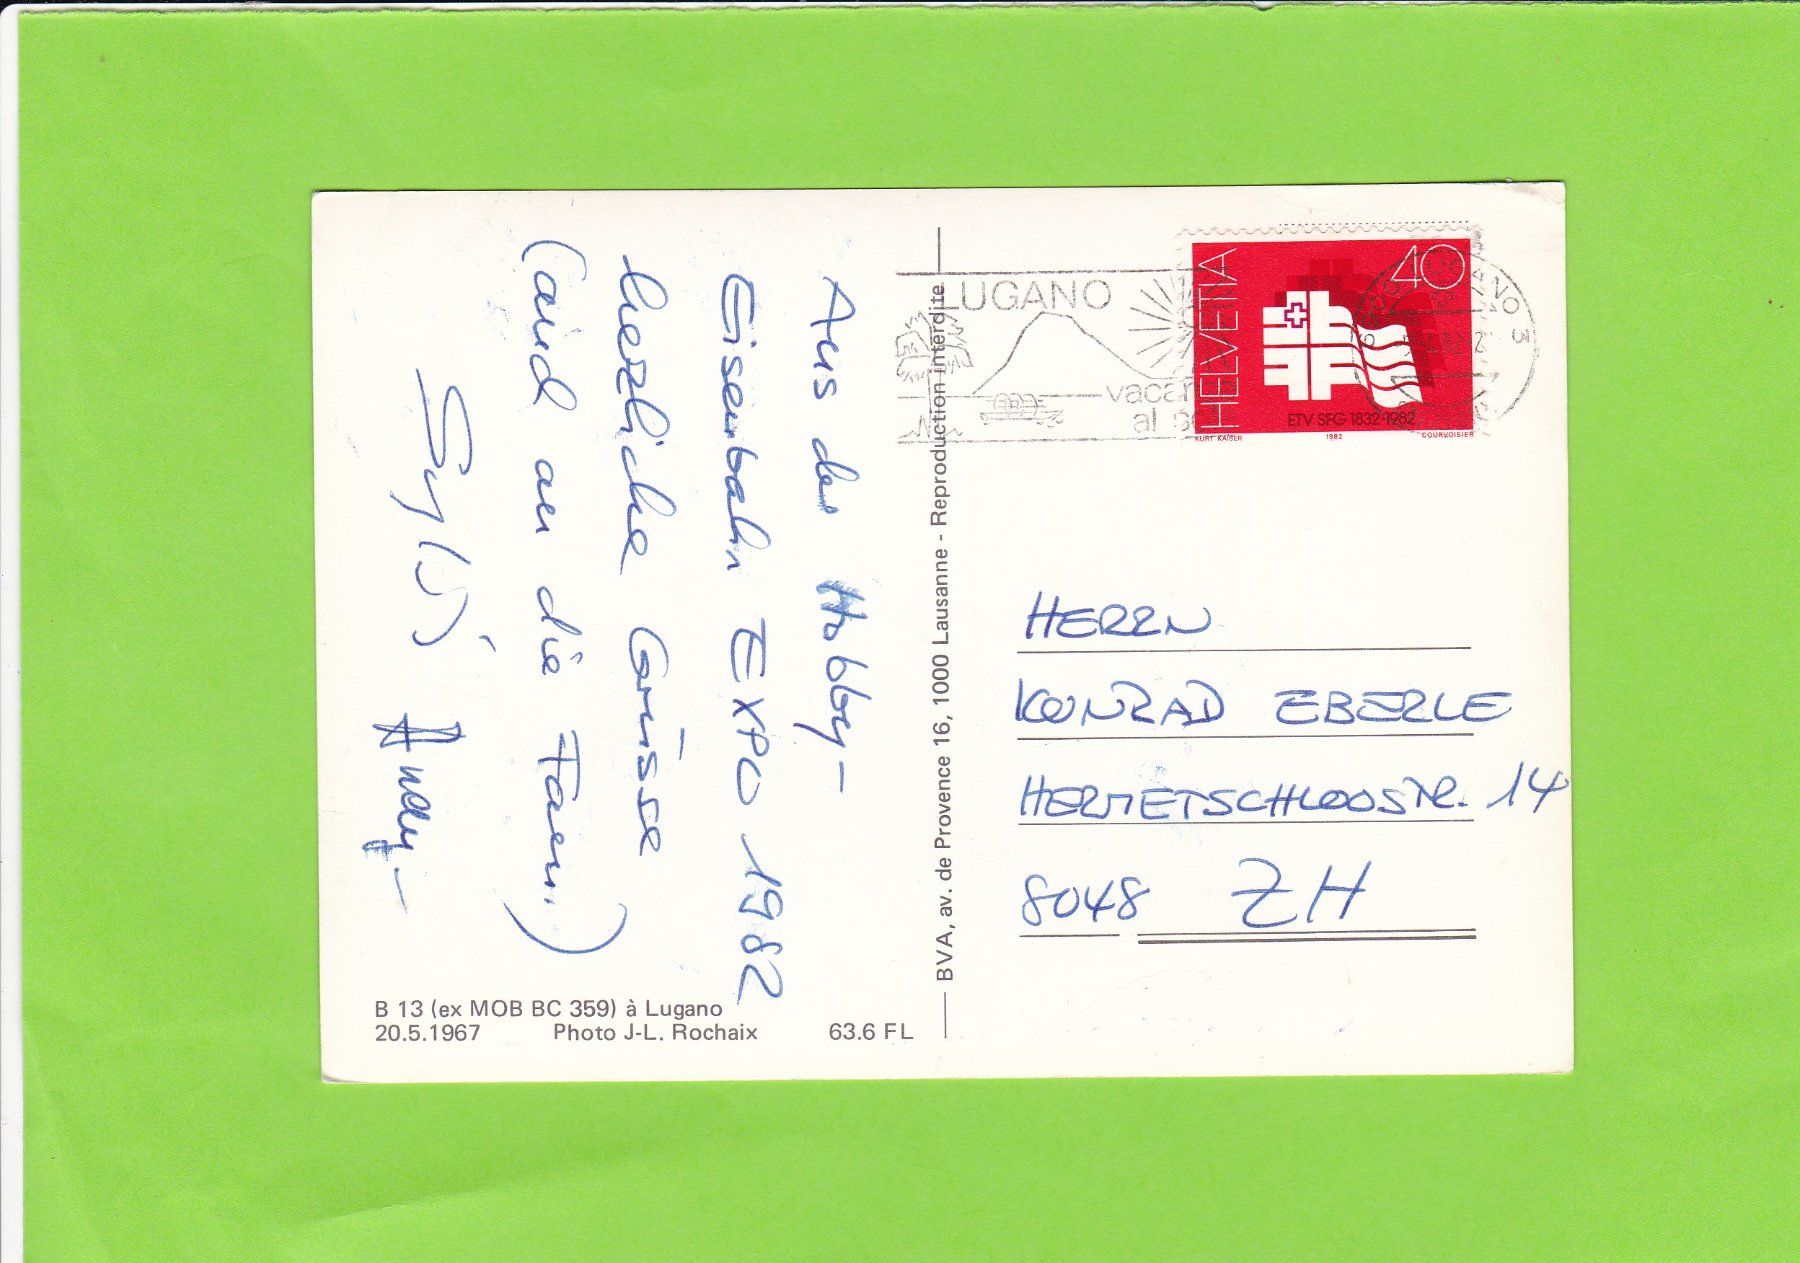 Aus der Hobby-
Eisenbahn EXPO 1982
herzliche Grüsse
(auch an die Fam.)
Andy -
B 13 (ex MOB BC 359) à Lugano
20.5.1967 Photo J-L. Rochaix 63.6 FL
BVA, av. de Provence 16, 1000 Lausanne - Reproduction interdite
LUGANO
vacan
al so
HELVETIA
40
ETV SFG 1832-1982
KURT KAISER 1982 COURVOISIER
HERRN
KONRAD EBERLE
HERMETSCHLOOSTR. 14
8048 ZH